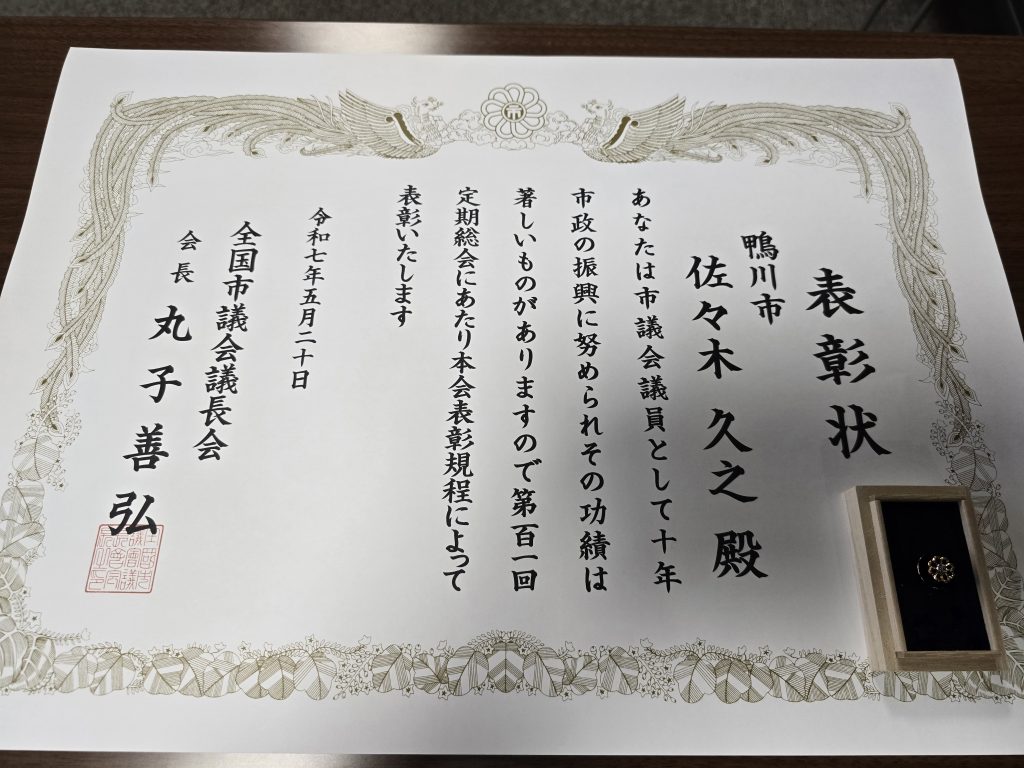 表彰状
鴨川市
佐々木久之殿
あなたは市議会議員として十年
市政の振興に努められその功績は
著しいものがありますので第百一回
定期総会にあたり本会表彰規程によって
表彰いたします
令和七年五月二十日
全国市議会議長会
会長 丸子善弘